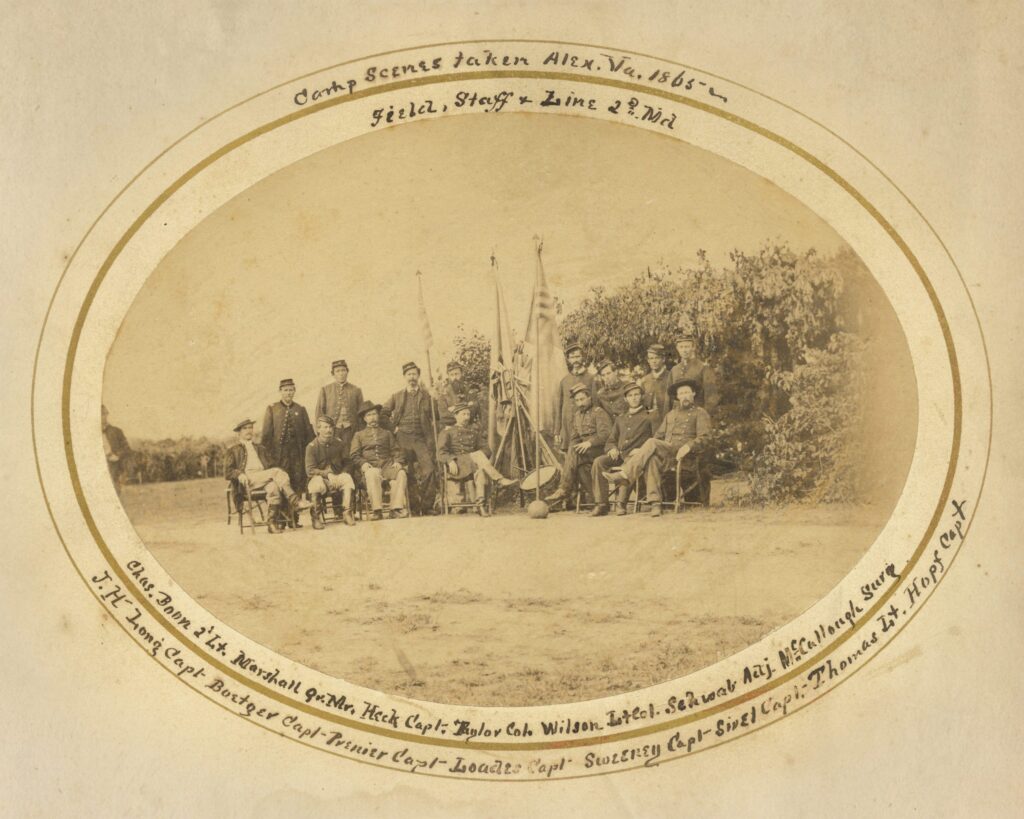 Camp Scenes taken Alex. Va. 1865
Field, Staff & Line 2d. Md
Chas. Boon 2d Lt. Marshall Qr. Mr. Heck Capt. Taylor Col. Wilson Lt Col. Schwab Adj. McCullough Surg
J. H. Long Capt Boetger Capt - Prenier Capt - Loades Capt - Sweeney Capt - Sivel Capt, - Thomas Lt. Hopf Capt